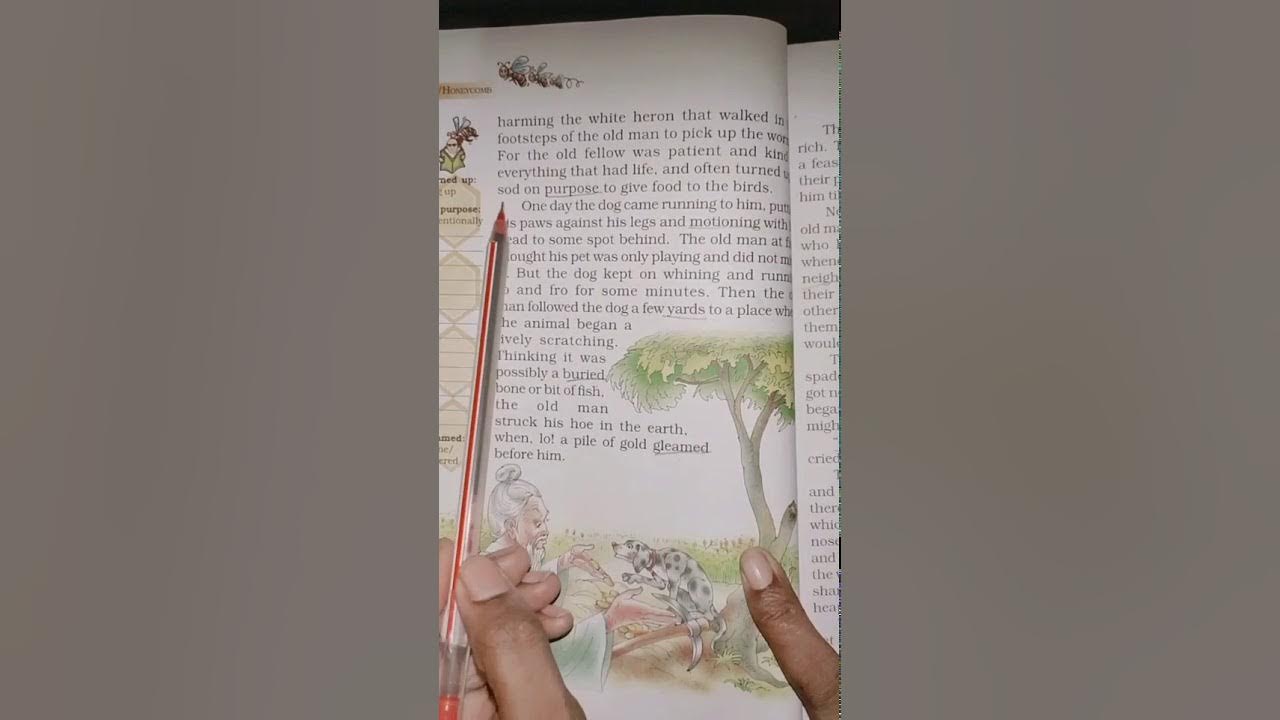 /HONEYCOMB
harming the white heron that walked in
footsteps of the old man to pick up the
For the old fellow was patient and kind
everything that had life, and often turned
sod on purpose to give food to the birds.
One day the dog came running to him,
paws against his legs and motioning with
to some spot behind. The old man at
his pet was only playing and did not
But the dog kept on whining and
and fro for some minutes. Then the
followed the dog a few yards to a place
animal began a
scratching.
Thinking it was
possibly a buried
bone or bit of fish,
the old man
struck his hoe in the earth,
when, lo! a pile of gold gleamed
before him.
up:
up
purpose:
rich.
a
their
him
old
who
their
other
them
got
cried
and
nose
and
the